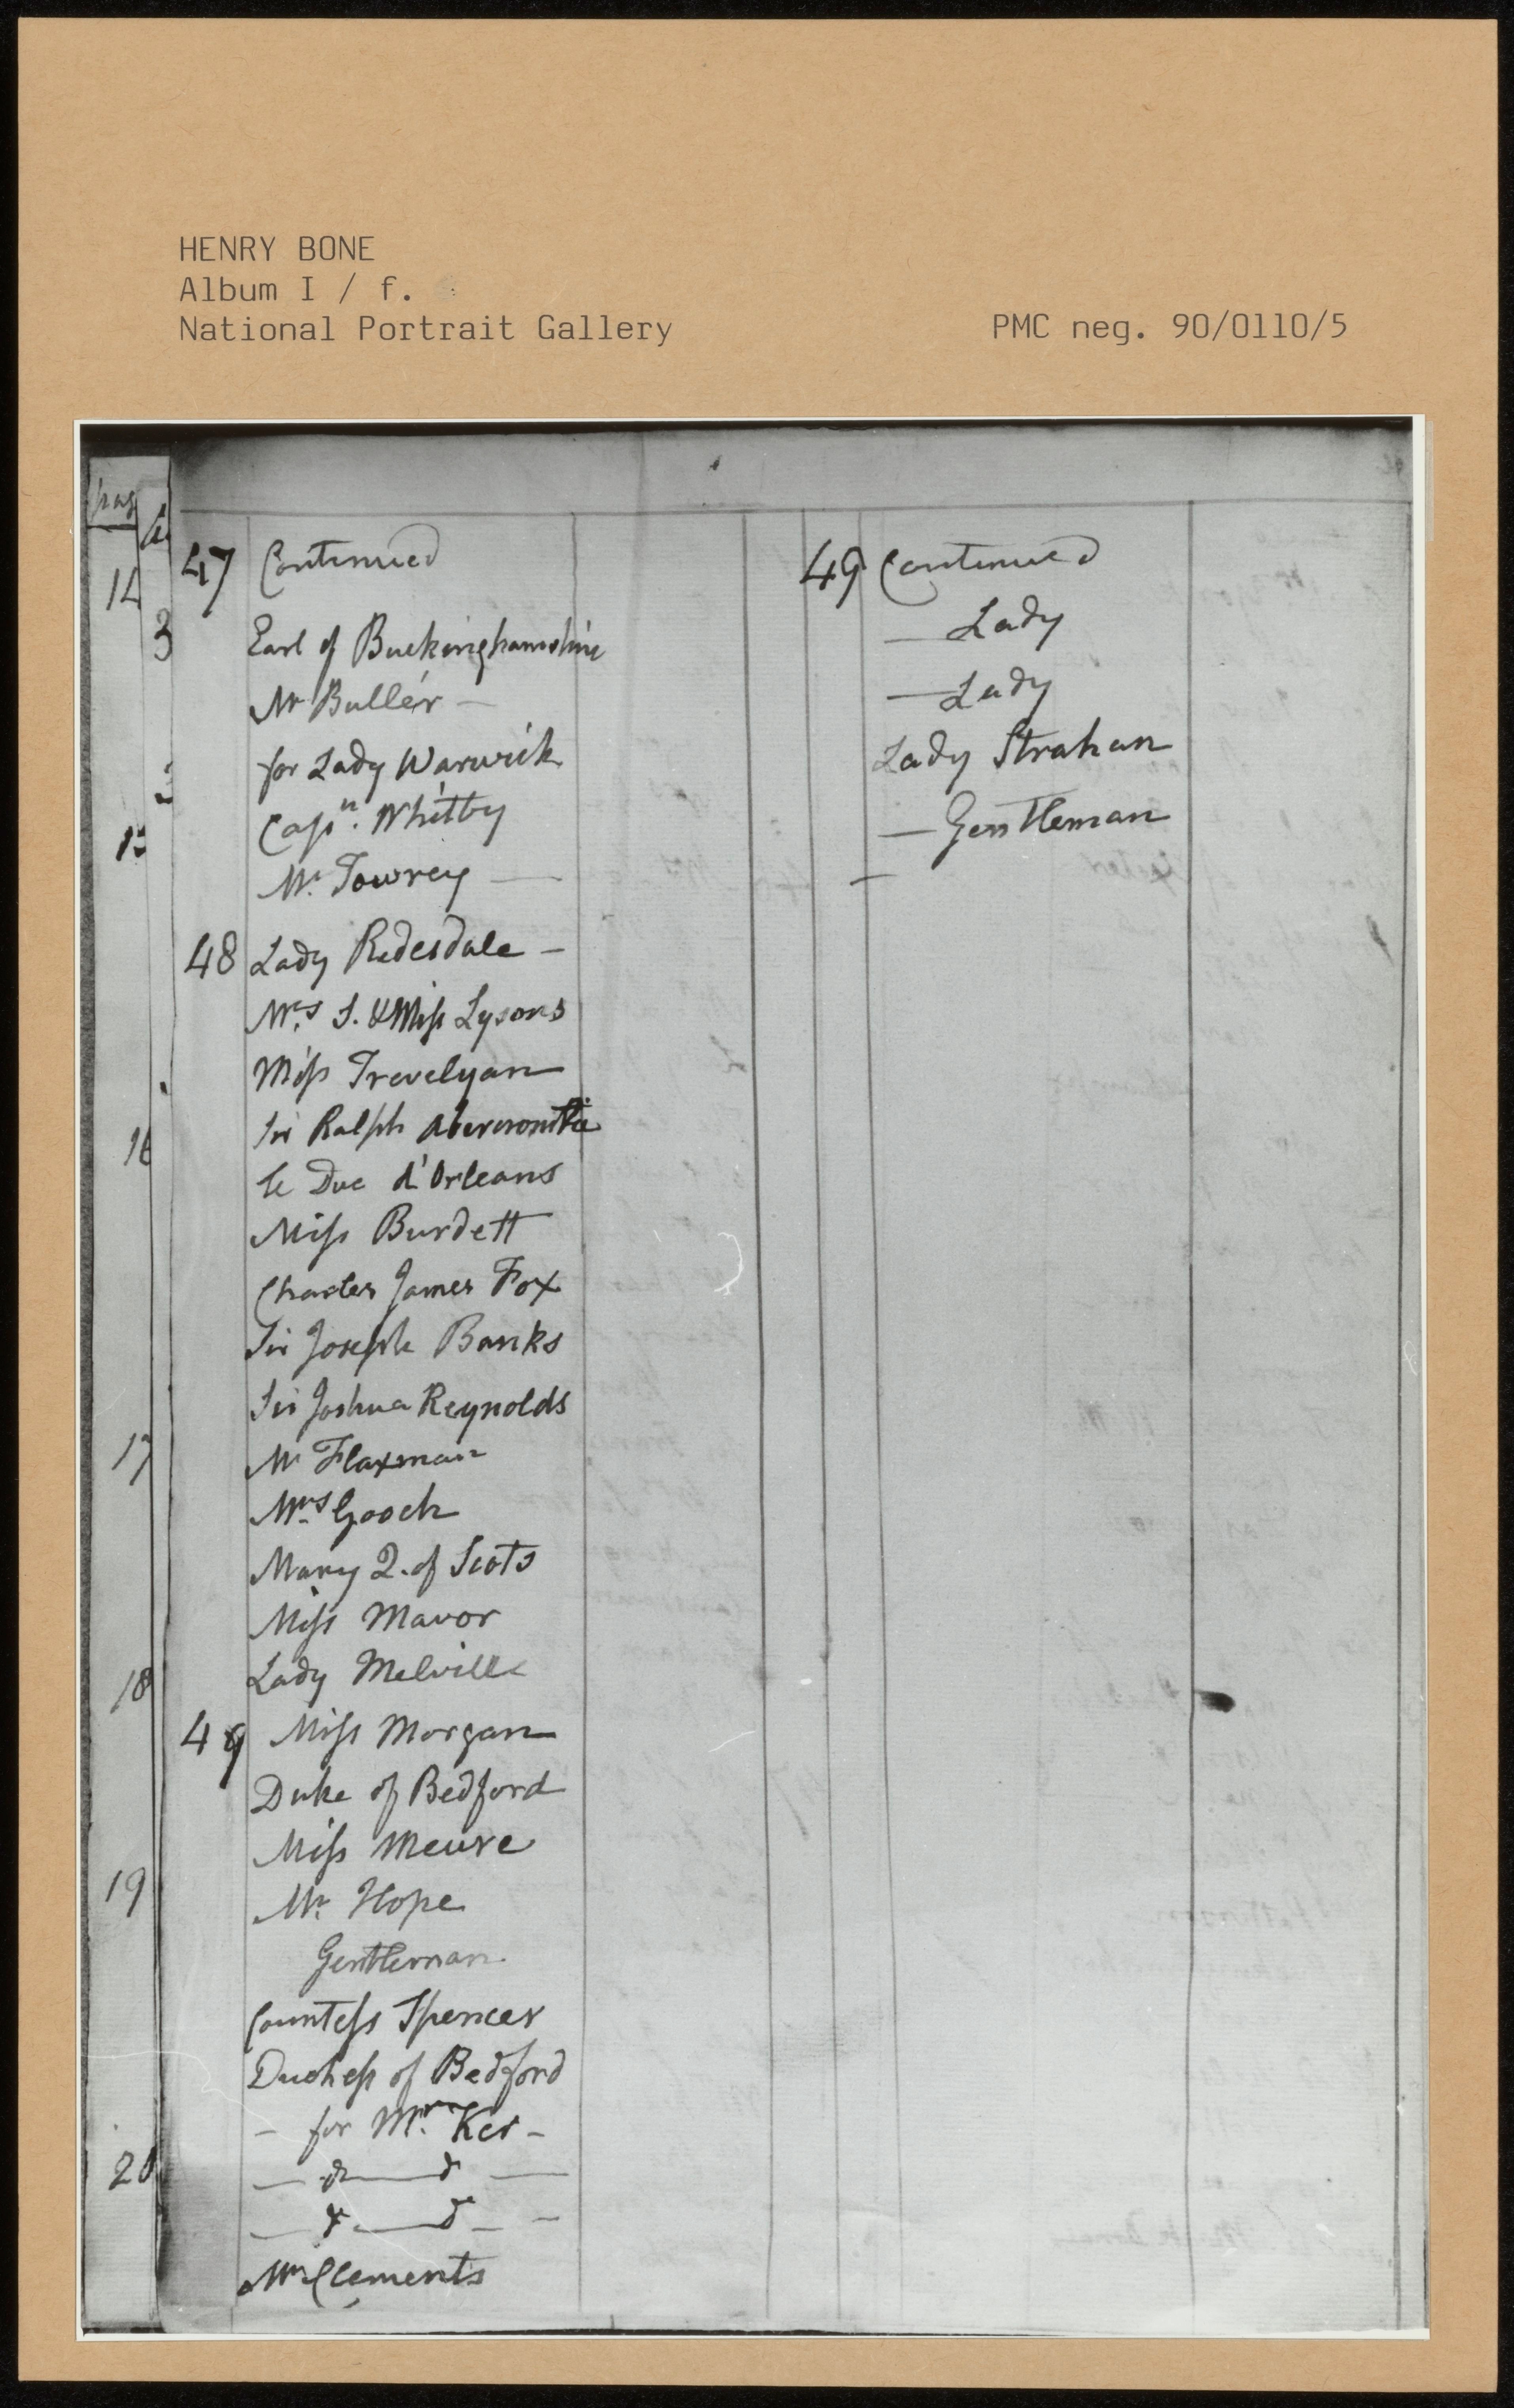 HENRY BONE
Album I / f.
National Portrait Gallery
PMC neg. 90/0110/5
pag
14
3
16
17
18
19
20
47 Continued
Earl of Buckinghamshire
Mr Buller –
for Lady Warwick
Capn. Whitby
Mr. Towrey —
48 Lady Redesdale –
Mrs S. & Miss Lysons
Miss Trevelyan
Sir Ralph Abercrombie
le Duc d'Orleans
Miss Burdett
Charles James Fox
Sir Joseph Banks
Sir Joshua Reynolds
Mr Flaxman
Mrs Gooch
Mary Q. of Scots
Miss Mavor
Lady Melville
49 Miss Morgan
Duke of Bedford
Miss Meure
Mr. Hope
Gentleman
Countess Spencer
Duchess of Bedford
– for Mr. Ker –
Mrs Clements
49 Continued
— Lady
— Lady
Lady Strahan
— Gentleman
—